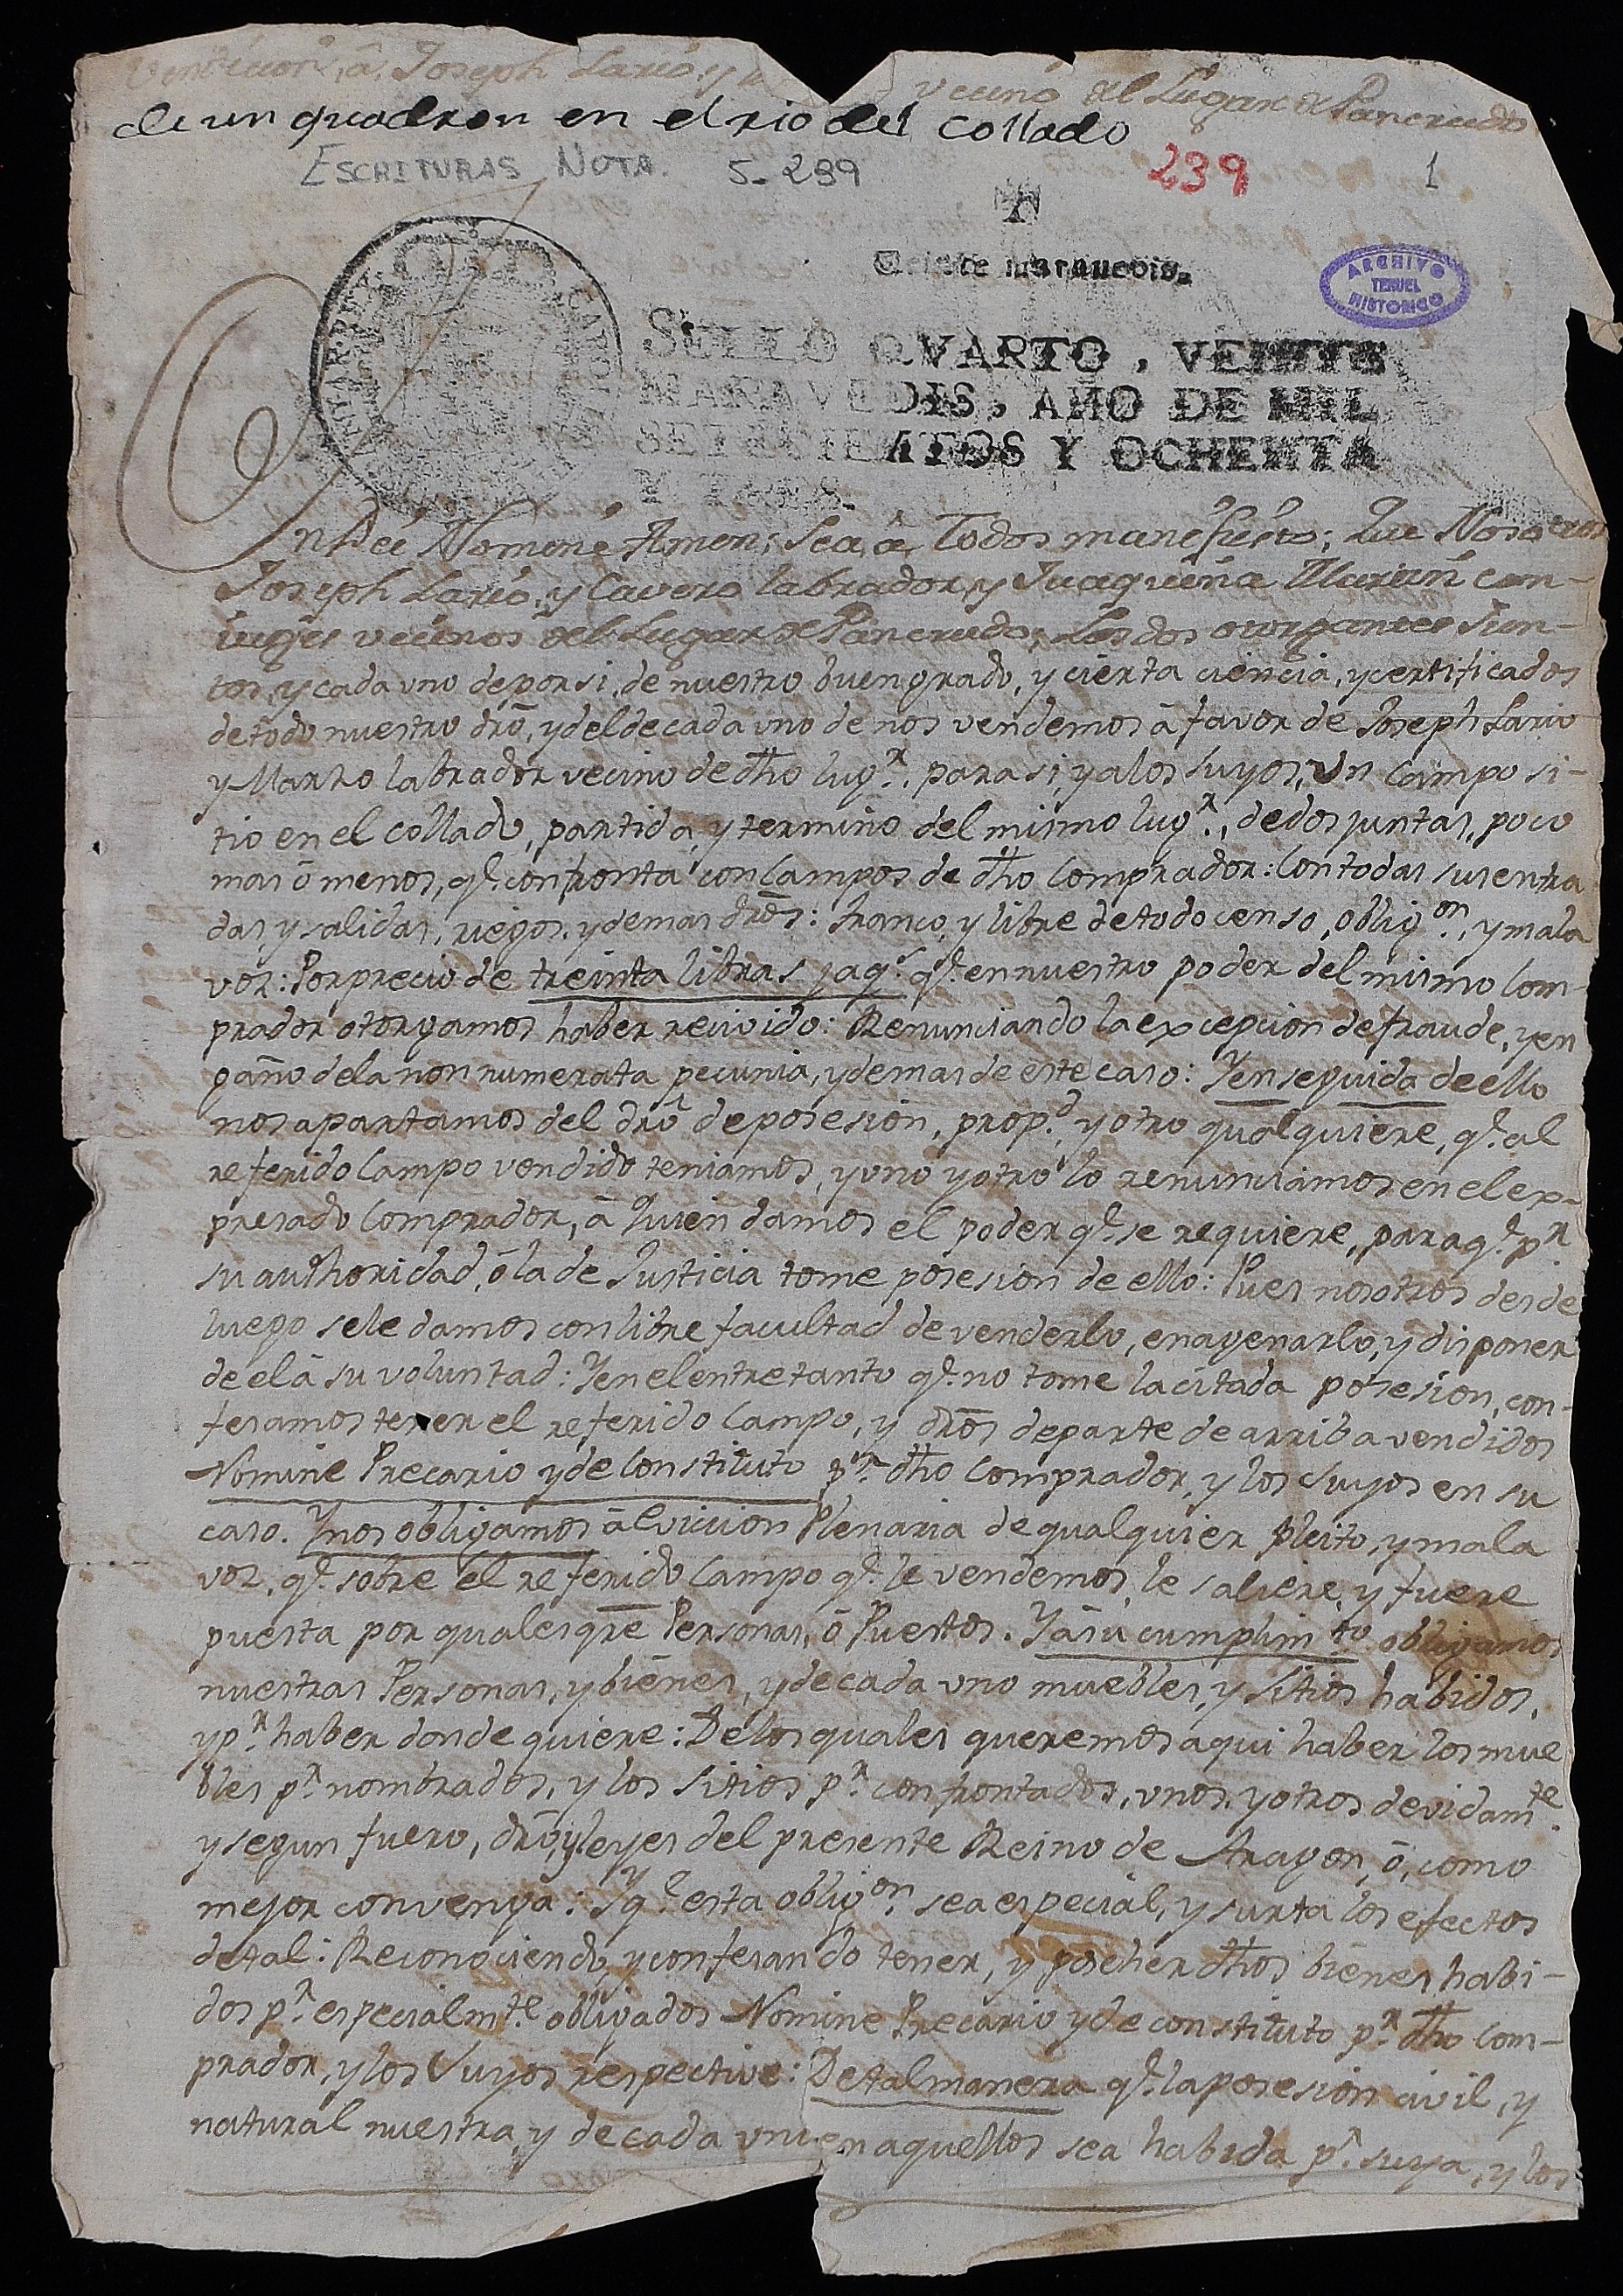 Vendicion, â, Joseph Lario, y vecino del Lugar de Pancrudo
de un quadron en el rio del collado
ESCRITURAS NOTA. 5-239
239
1
Veinte marauedis.
ARCHIVO
TERUEL
HISTORICO
SELLO QVARTO, VEINTE
MARAVEDIS, AÑO DE MIL
SETECIENTOS Y OCHENTA
Y TRES.
In Dei Nomine Amen; Sea, â, Todos manifiesto; Que Nosotros
Joseph Lario, y Cavero labrador, y Juaquina Marin con-
iuges vecinos del Lugar de Pancrudo; Los dos otorgantes Jun-
tos, y cada vno de por si, de nuestro buen grado, y cierta ciencia, y certificados
de todo nuestro drõ, y del de cada vno de nos vendemos â favor de Joseph Lario
y Marzo labrador vecino de dho lugr., para si, y a los suyos, vn Campo si-
tio en el collado, partida, y termino del mismo lugr., de dos juntas, poco
mas ô menos, q.e confronta con Campos de dho Comprador: Con todas sus entra
das, y salidas, riegos, y demas drõs: franco, y libre de todo censo, oblig.on, y mala
voz: Por precio de treinta libras jaq.s q.e en nuestro poder del mismo Com-
prador otorgamos haber recivido: Renunciando la excepcion de fraude, y en
gaño de la non numerata pecunia, y demas de este caso: Y en seguida de ello
nos apartamos del drõ de posesion, prop.d, y otro qualquiere, q.e al
referido Campo vendido teniamos, y vno y otro lo renunciamos en el ex-
presado Comprador, â Quien damos el poder q.e se requiere, para q.e p.r
su authoridad, ô la de Justicia tome posesion de ello: Pues nosotros desde
luego se le damos con libre facultad de venderlo, enagenarlo, y disponer
de el â su voluntad: Y en el entretanto q.e no tome la citada posesion, con-
fesamos tener el referido Campo, y drõs de parte de arriba vendidos
Nomine Precario y de Constituto p.r dho Comprador, y los Suyos en su
caso. Y nos obligamos â Eviccion Plenaria de qualquier pleito, y mala
voz, q.e sobre el referido Campo q.e le vendemos, le saliere, y fuere
puesta por qualesqre Personas, ô Puestos. Y â su cumplim.to obligamos
nuestras Personas, y bienes, y de cada vno muebles, y Sitios habidos,
y p.r haber donde quiere: De los quales queremos aqui haber los mue
bles p.r nombrados, y los Sitios p.r confrontados, vnos, y otros devidam.te
y segun fuero, drõ, y leyes del presente Reino de Aragon, ô, como
mejor convenga: Y q.e esta oblig.on sea especial, y surta los efectos
de tal: Reconociendo, y confesando tener, y poseher dhos bienes habi-
dos p.r especialm.te obligados Nomine Precario y de constituto p.r dho Com-
prador, y los Suyos respective: De tal manera q.e la posesion civil, y
natural nuestra, y de cada vno en aquellos sea habida p.r suya, y los